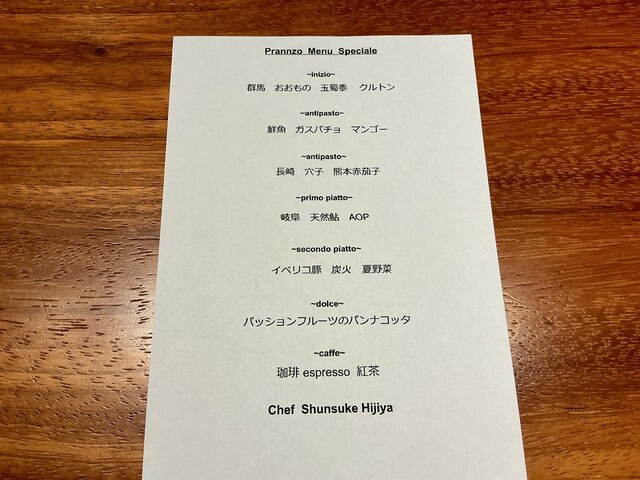 Prannzo Menu Speciale
~inizio~
群馬 おおもの 玉蜀黍 クルトン
~antipasto~
鮮魚 ガスパチョ マンゴー
~antipasto~
長崎 穴子 熊本赤茄子
~primo piatto~
岐阜 天然鮎 AOP
~secondo piatto~
イベリコ豚 炭火 夏野菜
~dolce~
パッションフルーツのパンナコッタ
~caffe~
珈琲 espresso 紅茶
Chef Shunsuke Hijiya